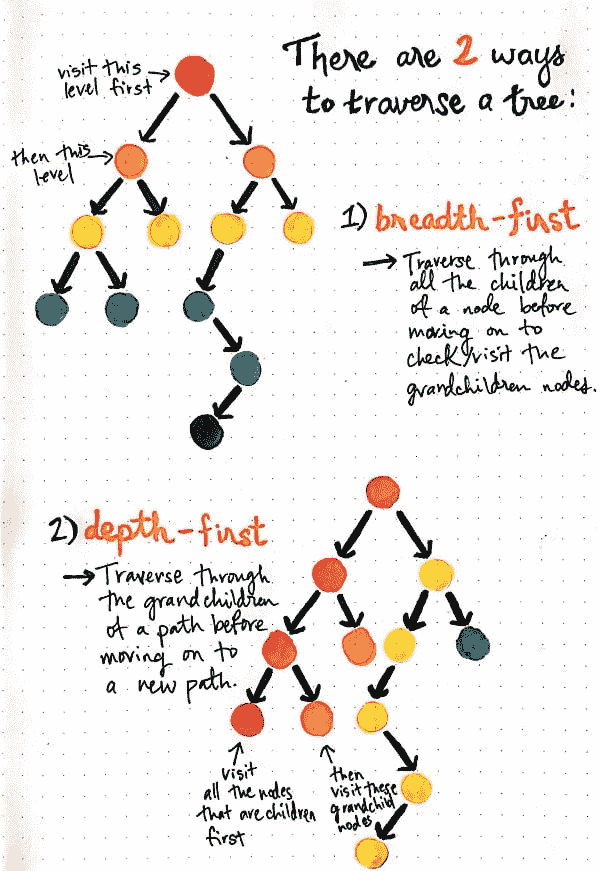 There are 2 ways
to traverse a tree:
visit this
level first
then this
level
1) breadth-first
Traverse through
all the children
of a node before
moving on to
check/visit the
grandchildren nodes.
2) depth-first
Traverse through
the grandchildren
of a path before
moving on to
a new path.
visit
all the nodes
that are children
first
then
visit these
grandchild
nodes